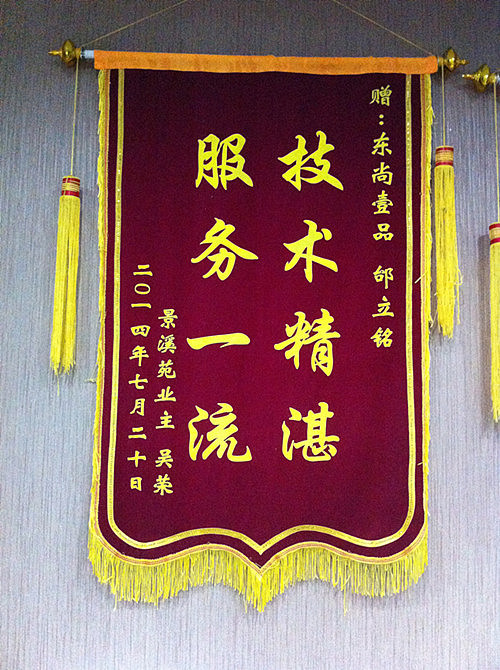 赠：东尚壹品 邰立铭
技术精湛
服务一流
景溪苑业主 吴荣
二〇一四年七月二十日